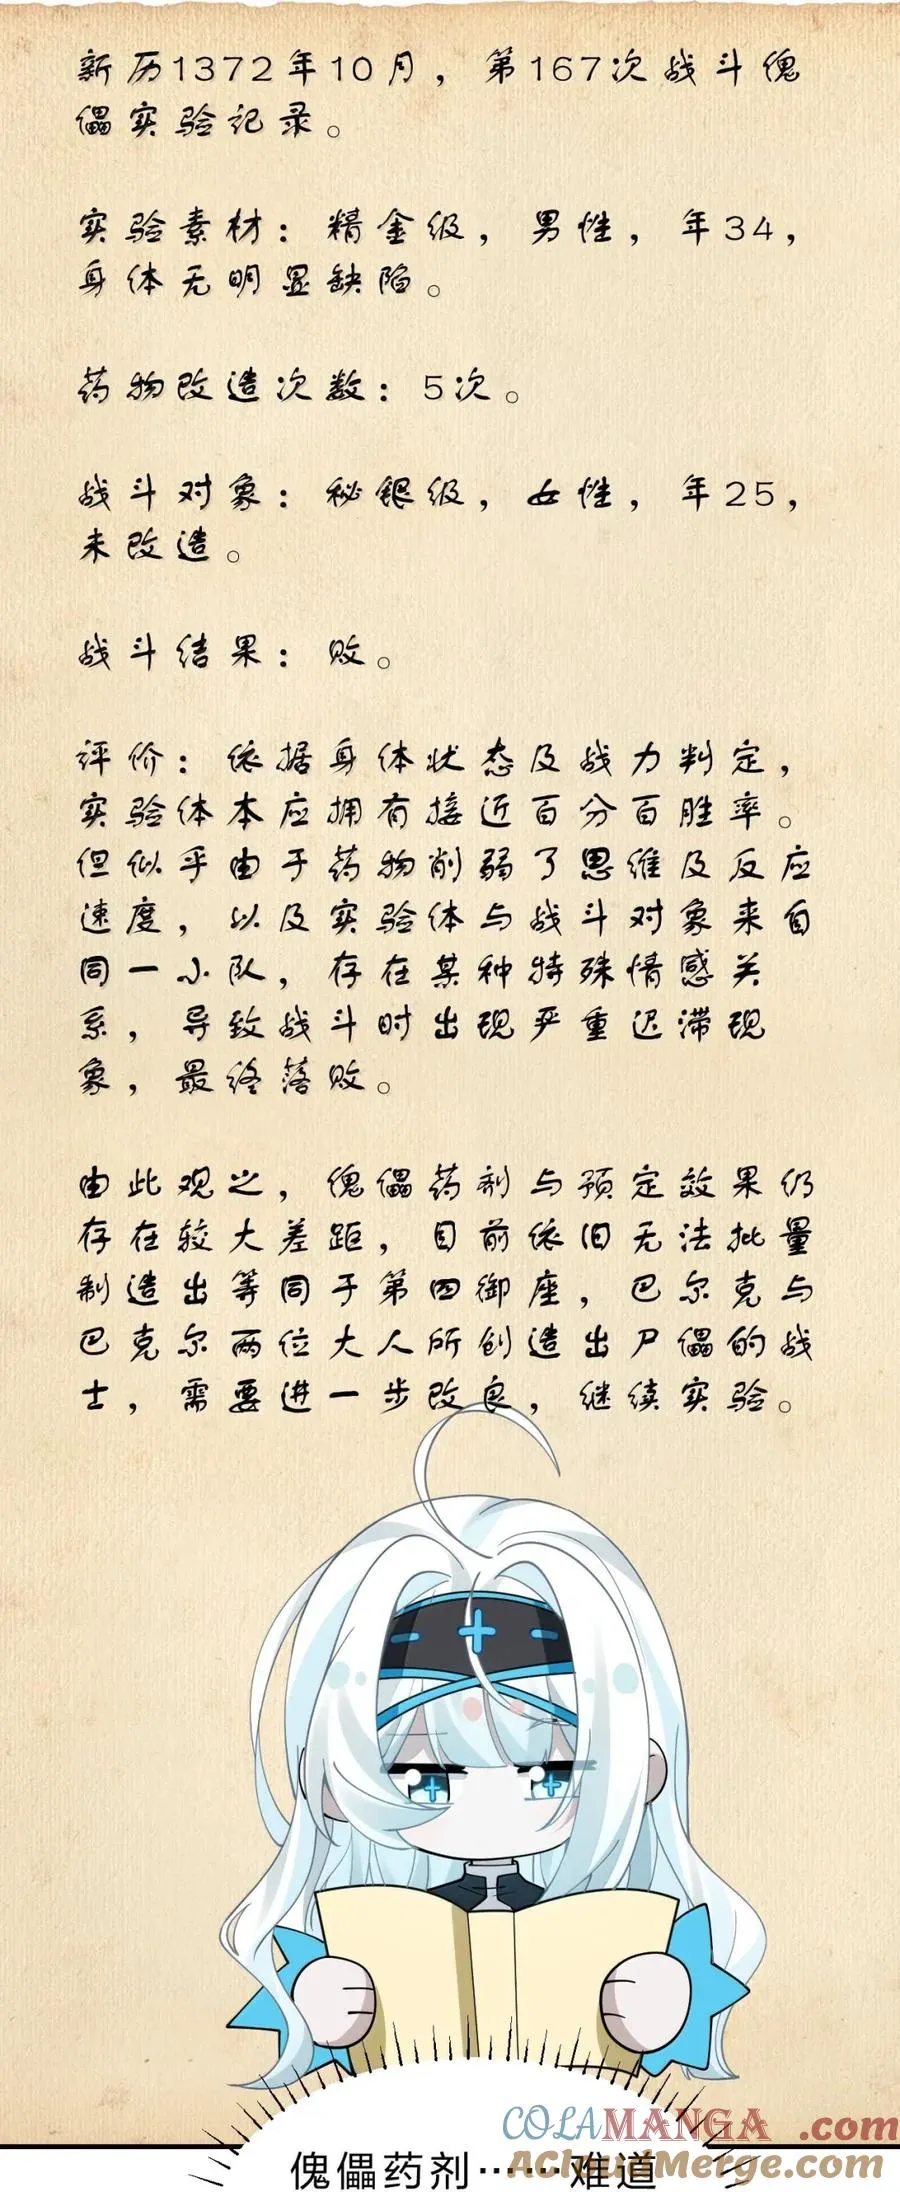 新历1372年10月，第167次战斗傀
儡实验记录。
实验素材：精金级，男性，年34，
身体无明显缺陷。
药物改造次数：5次。
战斗对象：秘银级，女性，年25，
未改造。
战斗结果：败。
评价：依据身体状态及战力判定，
实验体本应拥有接近百分百胜率。
但似乎由于药物削弱了思维及反应
速度，以及实验体与战斗对象来自
同一小队，存在某种特殊情感关
系，导致战斗时出现严重迟滞现
象，最终落败。
由此观之，傀儡药剂与预定效果仍
存在较大差距，目前依旧无法批量
制造出等同于第四御座，巴尔克与
巴克尔两位大人所创造出尸儡的战
士，需要进一步改良，继续实验。
COLAMANGA.com
AcloudMerge.com
傀儡药剂……难道